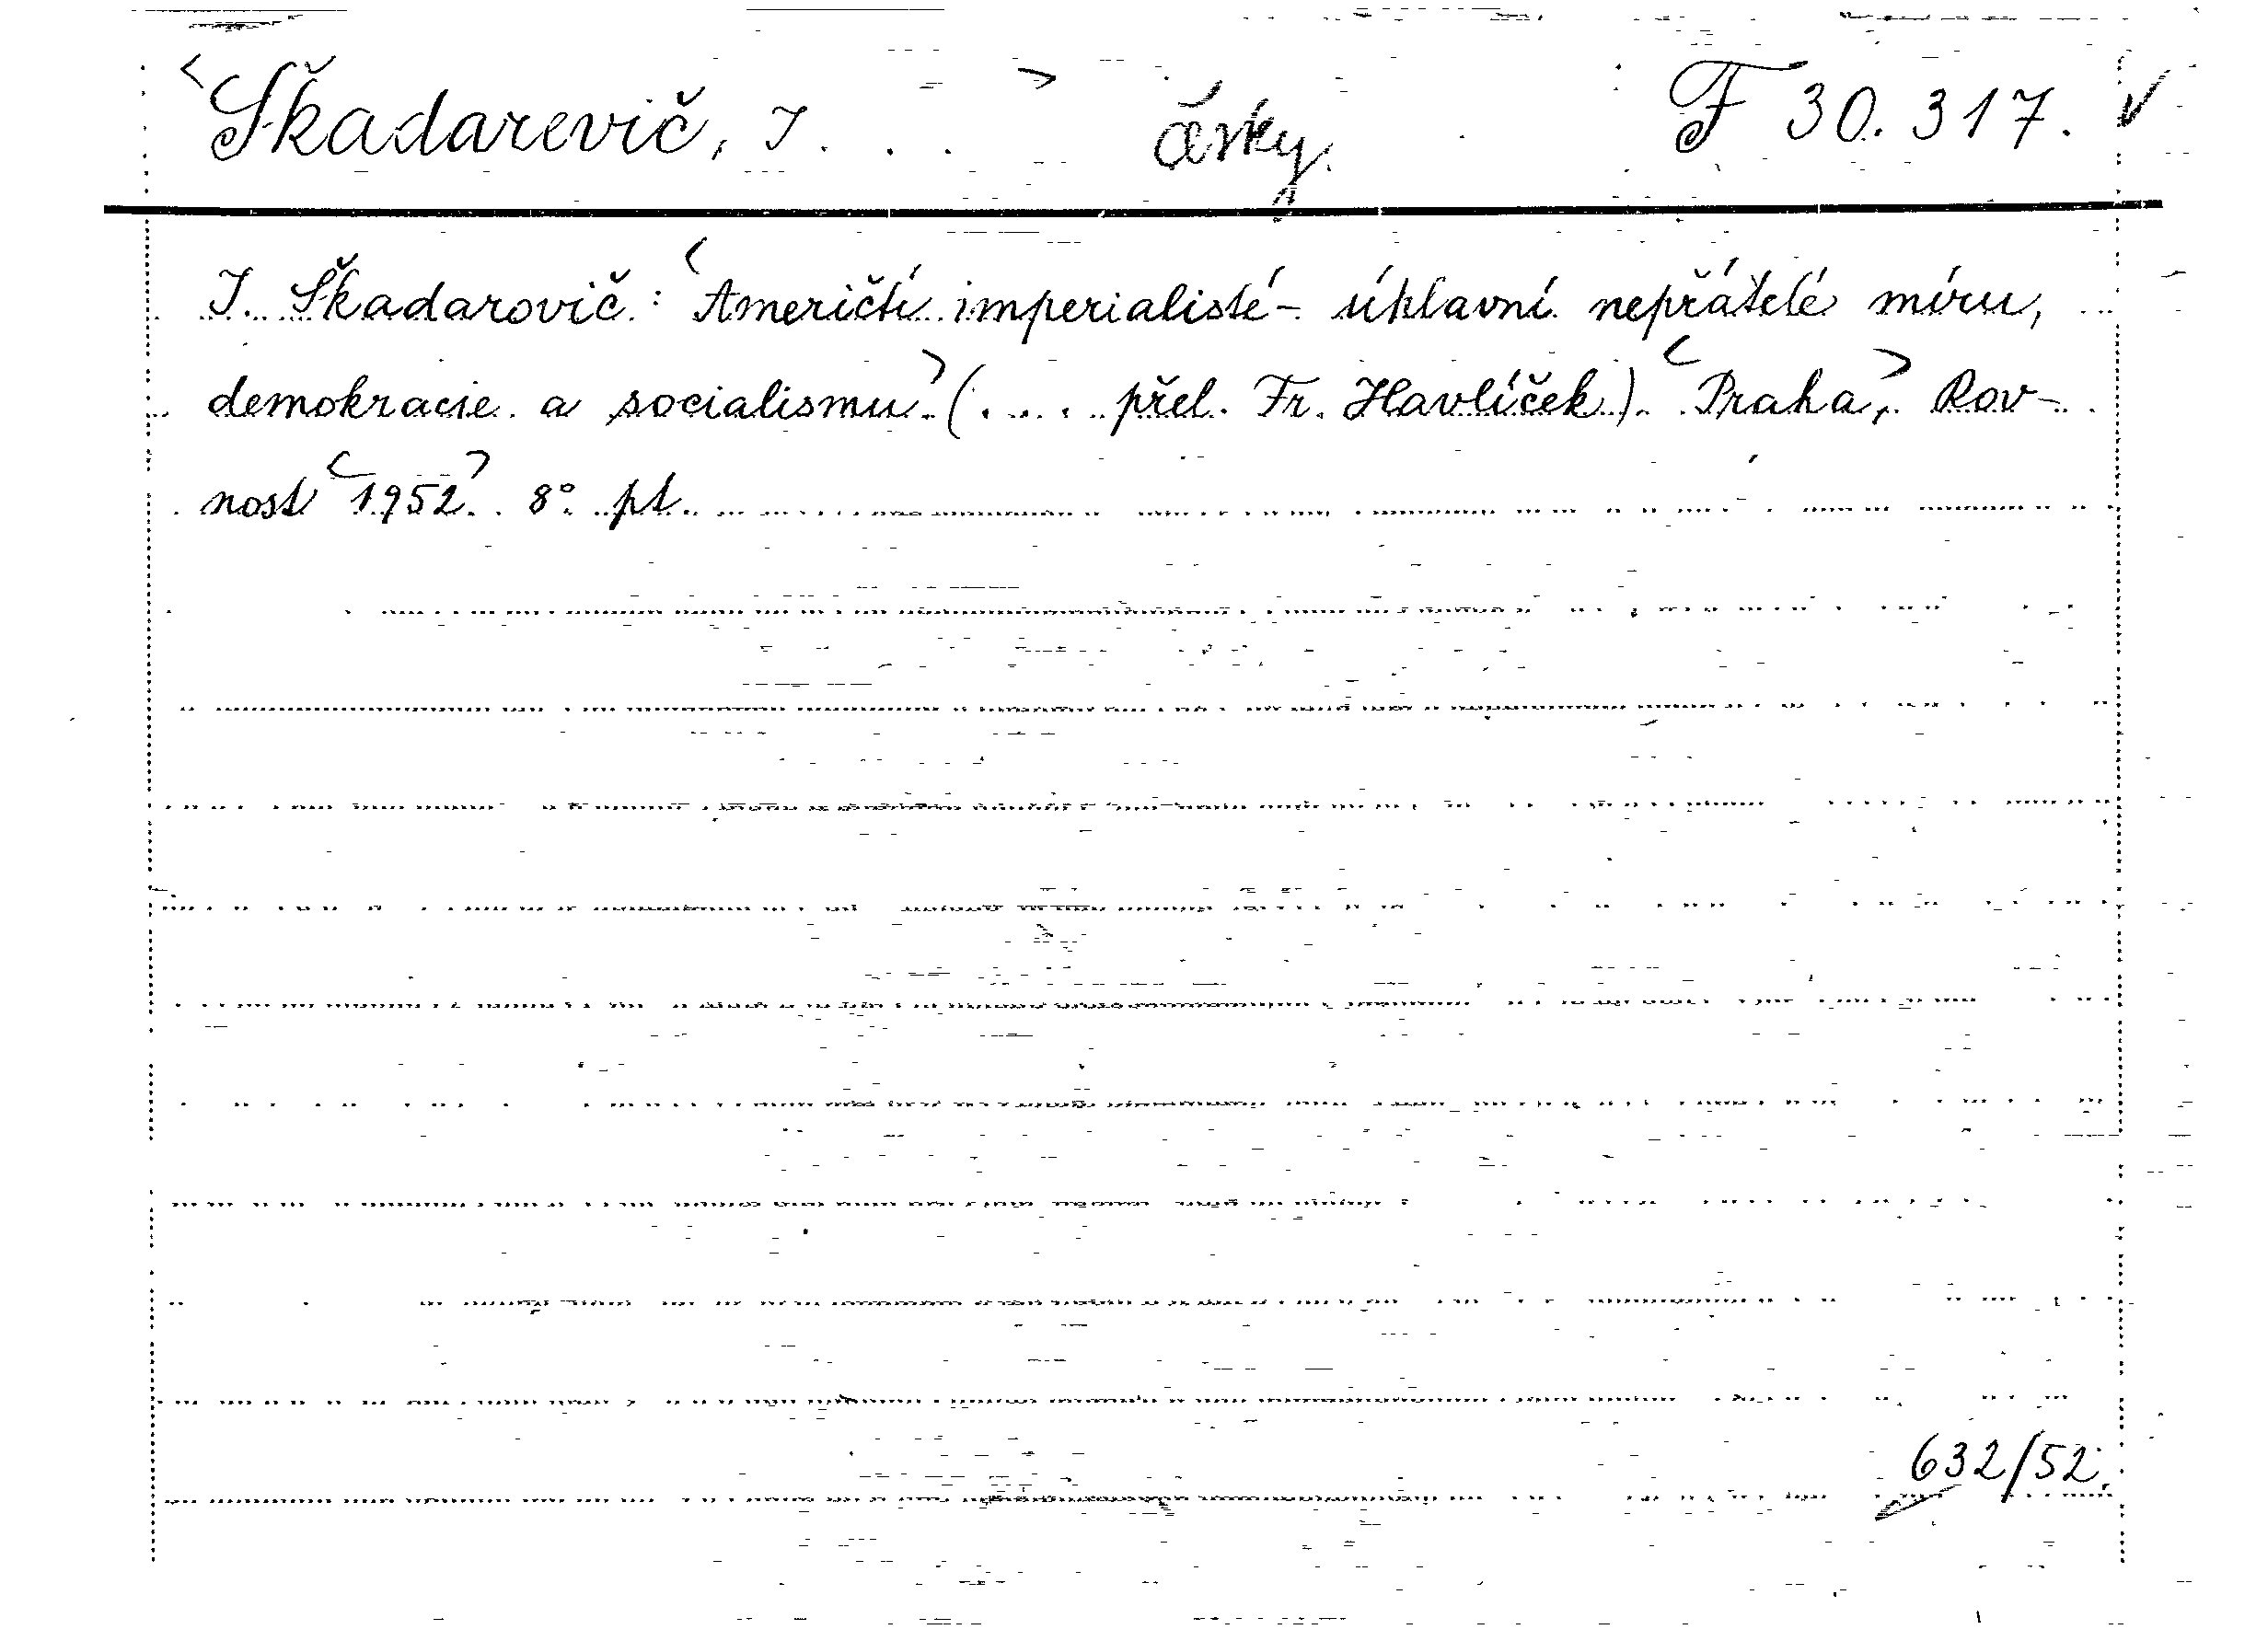 <Škadarevič, I. . . > čárky. F 30.317. √
I. Škadarovič: <Američtí imperialisté - úhlavní nepřátelé míru,
demokracie a socialismu> (. . . . přel. Fr. Havlíček). <Praha>, Rov-
nost <1952>. 8° pt.
632/52.